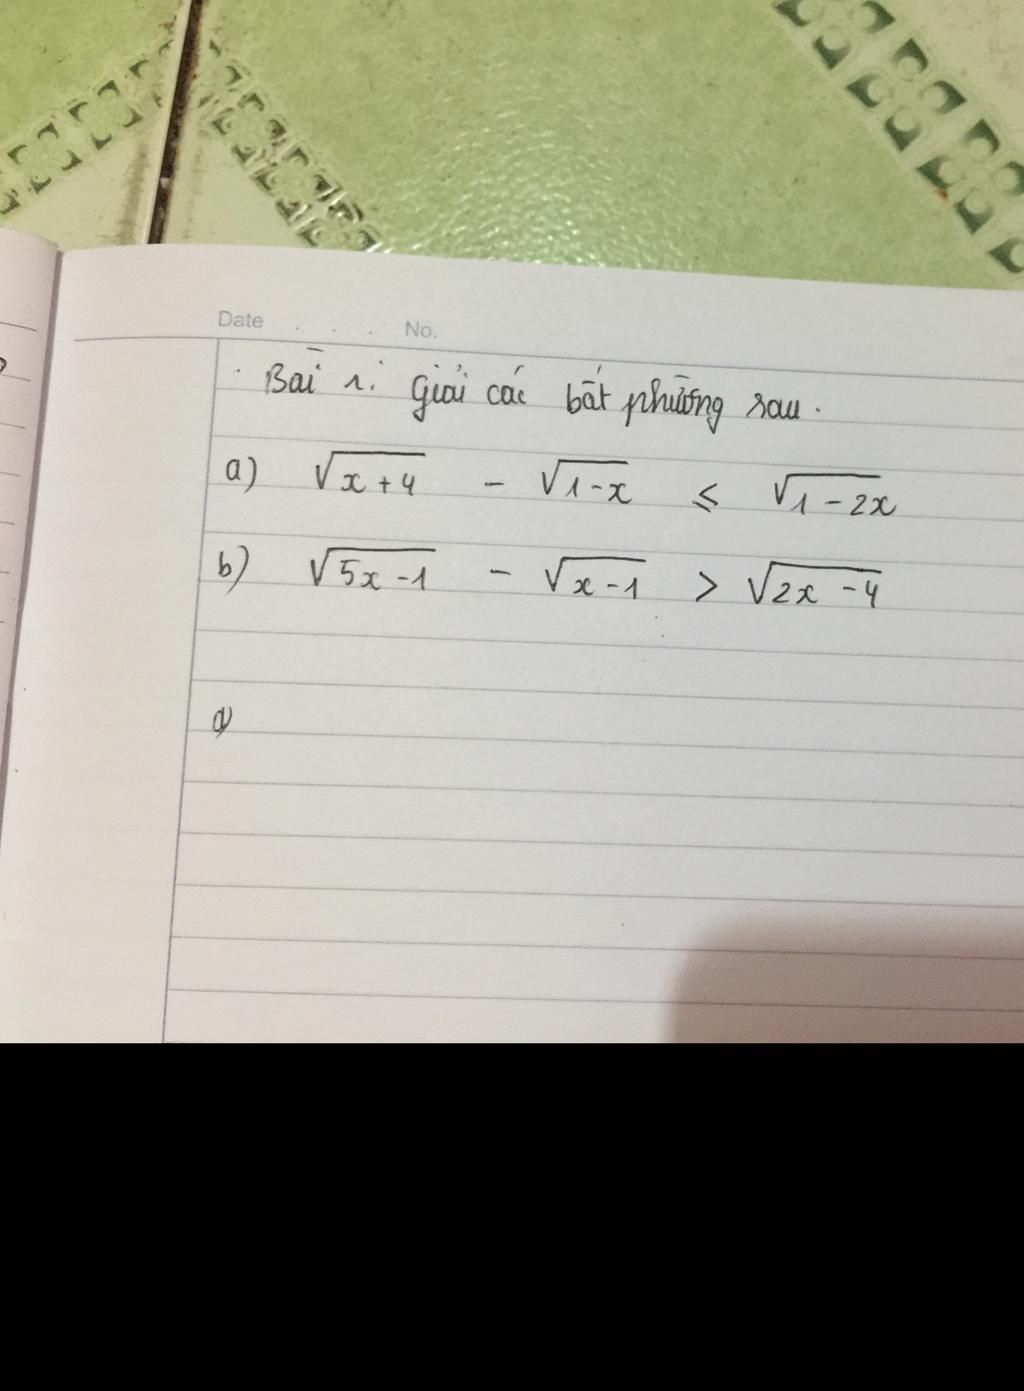 Date . . . No.
Bài 1. Giải các bất phường sau.
a) √(x+4) - √(1-x) ≤ √(1-2x)
b) √(5x-1) - √(x-1) > √(2x-4)
a)